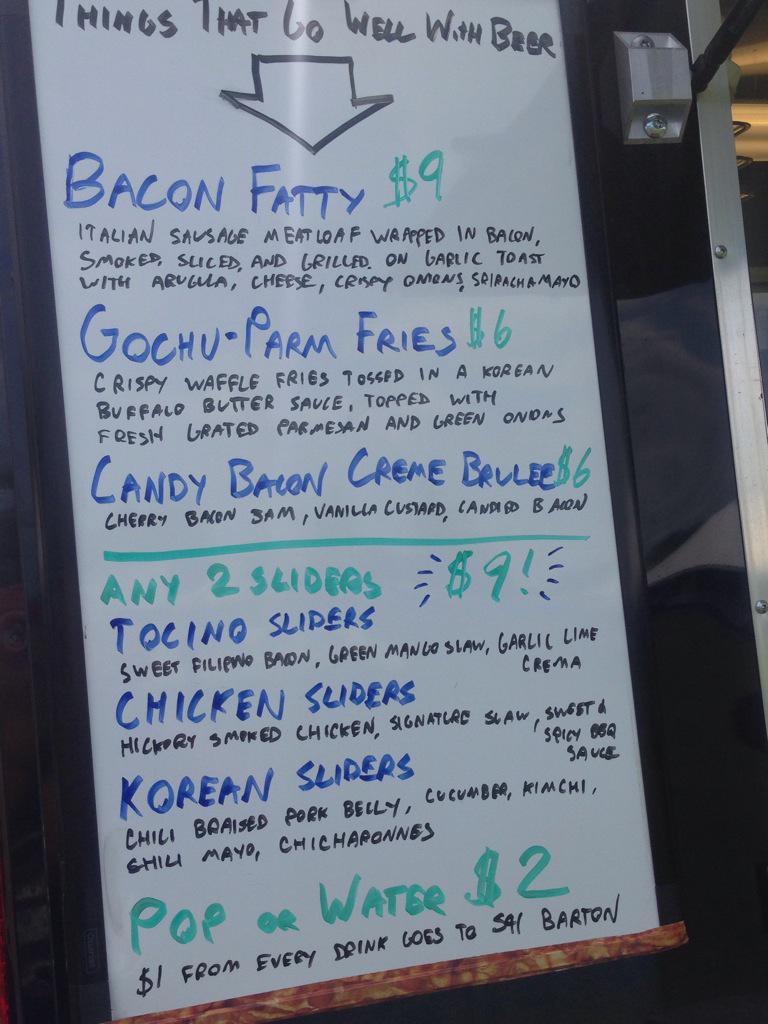 THINGS THAT GO WELL WITH BEER
BACON FATTY $9
ITALIAN SAUSAGE MEATLOAF WRAPPED IN BACON,
SMOKED, SLICED, AND GRILLED. ON GARLIC TOAST
WITH ARUGULA, CHEESE, CRISPY ONIONS, SRIRACHA MAYO
GOCHU-PARM FRIES $6
CRISPY WAFFLE FRIES TOSSED IN A KOREAN
BUFFALO BUTTER SAUCE, TOPPED WITH
FRESH GRATED PARMESAN AND GREEN ONIONS
CANDY BACON CREME BRULEE $6
CHERRY BACON JAM, VANILLA CUSTARD, CANDIED BACON
ANY 2 SLIDERS $9!
TOCINO SLIDERS
SWEET FILIPINO BACON, GREEN MANGO SLAW, GARLIC LIME
CREMA
CHICKEN SLIDERS
HICKORY SMOKED CHICKEN, SIGNATURE SLAW, SWEET &
SPICY BBQ
SAUCE
KOREAN SLIDERS
CHILI BRAISED PORK BELLY, CUCUMBER, KIMCHI,
CHILI MAYO, CHICHARONNES
POP OR WATER $2
$1 FROM EVERY DRINK GOES TO 541 BARTON